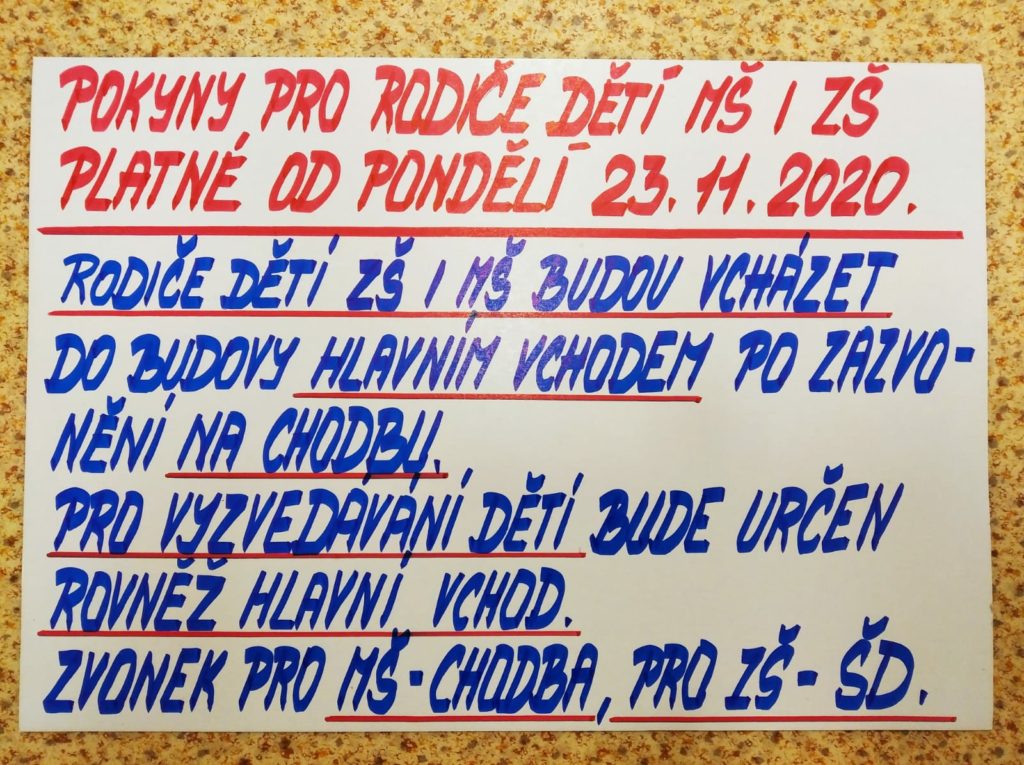 POKYNY PRO RODIČE DĚTÍ MŠ I ZŠ
PLATNÉ OD PONDĚLÍ 23.11.2020.
RODIČE DĚTÍ ZŠ I MŠ BUDOU VCHÁZET
DO BUDOVY HLAVNÍM VCHODEM PO ZAZVO-
NĚNÍ NA CHODBU.
PRO VYZVEDÁVÁNÍ DĚTÍ BUDE URČEN
ROVNĚŽ HLAVNÍ VCHOD.
ZVONEK PRO MŠ-CHODBA, PRO ZŠ- ŠD.